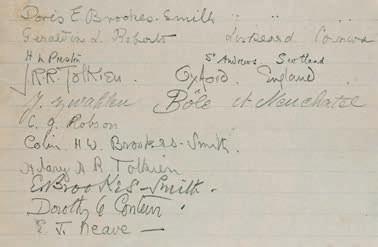 Doris E Brookes-Smith " " "
L. Roberts Liskeard Cornwall
H L Preston St Andrews Scotland
J.R.R. Tolkien. Oxford. England
Bôle et Neuchatel
C. G. Robson
Colin. H.W. Brookes-Smith.
Hilary A R Tolkien
E Brookes-Smith.
Dorothy
E. J. Neave —